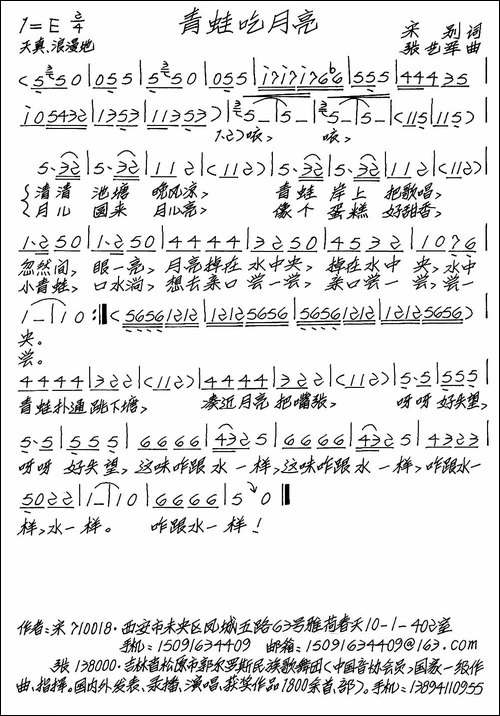 青蛙吃月亮
1=E 2/4
宋 别 词
天真、浪漫地
张艺军 曲
(5 5 0 | 0 5 5 | 5 5 0 | 0 5 5 | i 7 i 7 i 7 6 6 | 5 5 5 | 4 4 4 3 5
i 0 5 4 3 2 | 1 3 5 3 | 1 1 3 5 3) | 5 – | 5 – | 5 – | 5 – | (1 1 5 | 1 1 5) |
1、2)咳, 咳,
5· 3 2 | 5· 3 2 | 1 1 2 | (1 1 2) | 5· 3 2 | 5· 3 2 | 1 1 2 | (1 1 2) |
清清 池塘 晚风凉, 青蛙 岸上 把歌唱,
月儿 圆来 月儿亮, 像个 蛋糕 好甜香,
1· 2 5 0 | 1· 2 5 0 | 4 4 4 4 | 3 2 5 0 | 4 5 3 2 | 1 0 7 6 |
忽然间, 眼一亮, 月亮掉在 水中央, 掉在水中 央, 水中
小青蛙, 口水淌, 想去亲口 尝一尝, 亲口尝一 尝, 尝一
1 – | 1 0 :‖ (5656 1212 | 1212 5656 | 5656 1212 | 1212 5656) |
央。
尝。
4 4 4 4 | 3 2 2 | (1 1 2) | 4 4 4 4 | 3 2 2 | (1 1 2) | 5· 5 | 5 5 5 |
青蛙扑通 跳下塘, 凑近月亮 把嘴张, 呀呀 好失望,
5· 5 | 5 5 5 | 6 6 6 6 | 4 3 2 5 | 6 6 6 6 | 4 3 2 5 | 4 3 2 3 |
呀呀 好失望, 这味咋跟 水 一样, 这味咋跟 水 一样, 咋跟水一
5 0 2 2 | 1 – | 1 0 | 6 6 6 6 | 5 0 ‖
样,水一 样。 咋跟水一 样!
作者:宋710018·西安市未央区凤城五路63号雅荷春天10-1-402室
手机:15091634409 邮箱:15091634409@163.com
张138000·吉林省松原市郭尔罗斯民族歌舞团(中国音协会员)国家一级作
曲、指挥。国内外发表、录播、演唱、获奖作品1800余首、部)。手机:13894110955